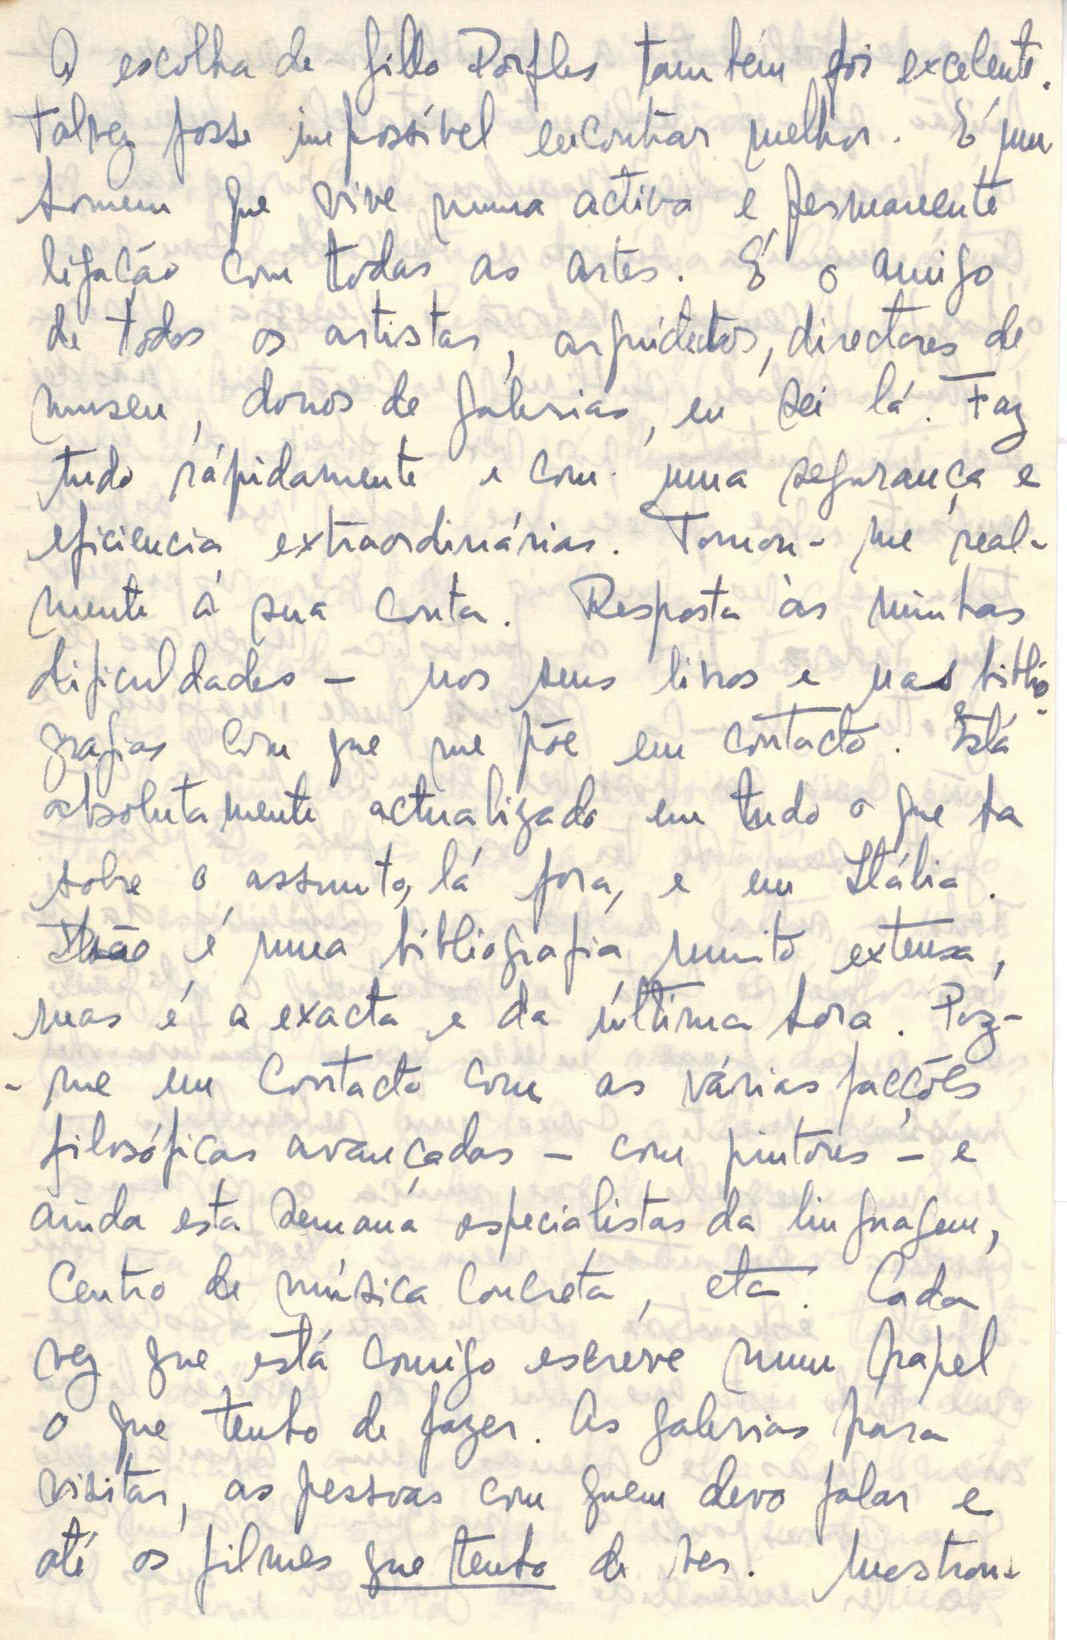 A escolha de Gillo Dorfles também foi excelente.
Talvez fosse impossível encontrar melhor. É um
homem que vive numa activa e permanente
ligação com todas as artes. É o amigo
de todos os artistas, arquitectos, directores de
museu, donos de galerias, eu sei lá. Faz
tudo rápidamente e com uma segurança e
eficiencia extraordinárias. Tomou-me real-
mente à sua conta. Resposta às minhas
dificuldades – nos seus livros e nas biblio-
grafias com que me põe em contacto. Está
absolutamente actualizado em tudo o que ha
sobre o assunto, lá fora, e em Itália.
Não é uma bibliografia muito extensa,
mas é a exacta e da última hora. Poz-
-me em contacto com as várias facções
filosóficas avançadas – com pintores – e
ainda esta semana especialistas da linguagem,
Centro de música concreta, etc. Cada
vez que está comigo escreve num papel
o que tenho de fazer. As galerias para
visitar, as pessoas com quem devo falar e
até os filmes que tenho de ver. Mostrou-